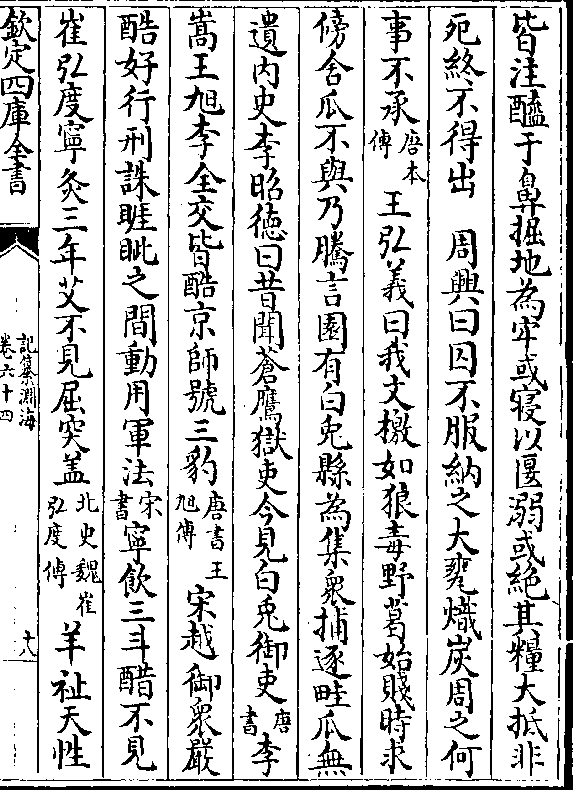 皆注醯于鼻掘地為牢或寢以匽溺或絕其糧大抵非
死終不得出　周興曰囚不服納之大甕熾炭周之何
事不承唐本傳　王弘義曰我文檄如狼毒野葛始賤時求
傍舍瓜不與乃騰言園有白兎縣為集衆捕逐畦瓜無
遺内史李昭徳曰昔聞蒼鷹獄吏今見白兎御史唐書　李
嵩王旭李全交皆酷京師號三豹唐書王旭傳　宋越御衆嚴
酷好行刑誅睚眦之間動用軍法宋書　寧飲三斗醋不見
崔弘度寧灸三年艾不見屈突盖北史魏崔弘度傳　羊祉天性
欽定四庫全書
記纂淵海
卷六十四
十八